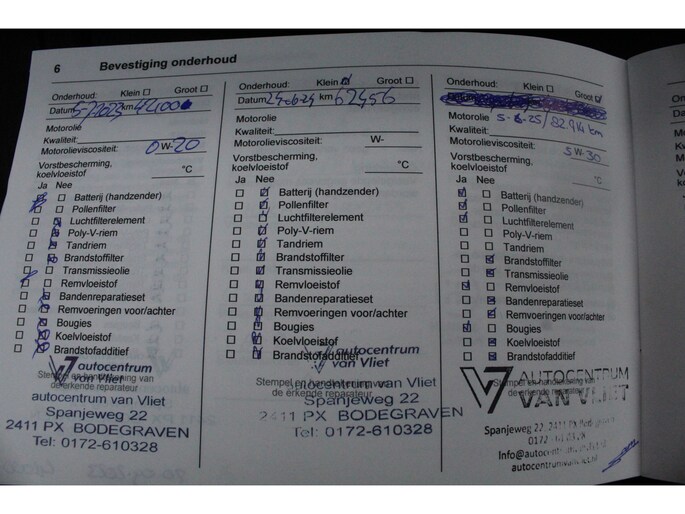 6 Bevestiging onderhoud
Onderhoud: Klein Groot
Datum km
Motorolie
Kwaliteit:
Motorolieviscositeit: 0 W-20
Vorstbescherming,
koelvloeistof °C
Ja Nee
Batterij (handzender)
Pollenfilter
Luchtfilterelement
Poly-V-riem
Tandriem
Brandstoffilter
Transmissieolie
Remvloeistof
Bandenreparatieset
Remvoeringen voor/achter
Bougies
Koelvloeistof
Brandstofadditief
autocentrum
van Vliet
Stempel en handtekening van
de erkende reparateur
autocentrum van Vliet
Spanjeweg 22
2411 PX BODEGRAVEN
Tel: 0172-610328
Onderhoud: Klein Groot
Datum km 62456
Motorolie
Kwaliteit:
Motorolieviscositeit: W-
Vorstbescherming,
koelvloeistof °C
Ja Nee
Batterij (handzender)
Pollenfilter
Luchtfilterelement
Poly-V-riem
Tandriem
Brandstoffilter
Transmissieolie
Remvloeistof
Bandenreparatieset
Remvoeringen voor/achter
Bougies
Koelvloeistof
Brandstofadditief
autocentrum
van Vliet
Stempel en handtekening van
de erkende reparateur
autocentrum van Vliet
Spanjeweg 22
2411 PX BODEGRAVEN
Tel: 0172-610328
Onderhoud: Klein Groot
Motorolie
Kwaliteit:
Motorolieviscositeit: 5 W-30
Vorstbescherming,
koelvloeistof °C
Ja Nee
Batterij (handzender)
Pollenfilter
Luchtfilterelement
Poly-V-riem
Tandriem
Brandstoffilter
Transmissieolie
Remvloeistof
Bandenreparatieset
Remvoeringen voor/achter
Bougies
Koelvloeistof
Brandstofadditief
AUTOCENTRUM
VAN VLIET
Stempel en handtekening van
de erkende reparateur
Spanjeweg 22, 2411 PX